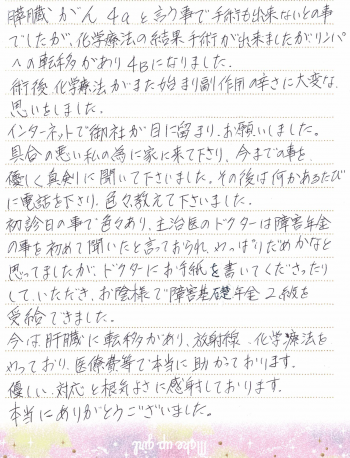 膵臓がん4aと言う事で手術も出来ないとの事
でしたが、化学療法の結果手術が出来ましたがリンパ
への転移があり4Bになりました。
術後、化学療法がまた始まり副作用の辛さに大変な
思いをしました。
インターネットで御社が目に留まり、お願いしました。
具合の悪い私の為に家に来て下さり、今までの事を
優しく真剣に聞いて下さいました。その後は何かあるたび
に電話を下さり、色々教えて下さいました。
初診日の事で色々あり、主治医のドクターは障害年金
の事を初めて聞いたと言っておられ、やっぱりだめかなと
思ってましたが、ドクターにお手紙を書いてくださったり
して、いただき、お陰様で障害基礎年金2級を
受給できました。
今は肝臓に転移があり、放射線、化学療法を
やっており、医療費等で本当に助かっております。
優しい対応と根気よさに感謝しております。
本当にありがとうございました。
Make up girl